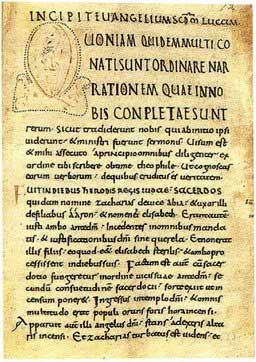 INCIPIT EVANGELIUM SCDM LUCAM
QUONIAM QUIDEM MULTI CO
NATI SUNT ORDINARE NAR
RATIONEM QUAE IN NO
BIS CONPLETAE SUNT
rerum. Sicut tradiderunt nobis qui ab initio ipsi
viderunt & ministri fuerunt sermonis. Uisum est
& mihi assecuto a principio omnibus diligenter ex
ordine tibi scribere obtime theophile. Ut cognoscas
eorum verborum. de quibus eruditus es veritatem.
FUIT IN DIEBUS HERODIS REGIS IUDAE. SACERDOS
quidam nomine Zacharias de vice abia. & uxor illi
de filiabus aaron. & nomen ei elisabeth. Erant autem
iusti ambo ante dm. Incedentes in omnibus manda
tis. & iustificationibus dni sine querela. Et non erat
illis filius. eo quod esset elisabeth sterilis. & ambo pro
cessissent in diebus suis. Factum est autem cum sacer
dotio fungeretur in ordine vicis suae ante dm. se
cundum consuetudinem sacerdotii. sorte exiit ut in
censum poneret. Ingressus in templum dni. & omnis
multitudo erat populi orans foris hora incensi.
Apparuit autem illi angelus dni. stans a dextris altaris
incensi. Et zacharias turbatus est videns. &